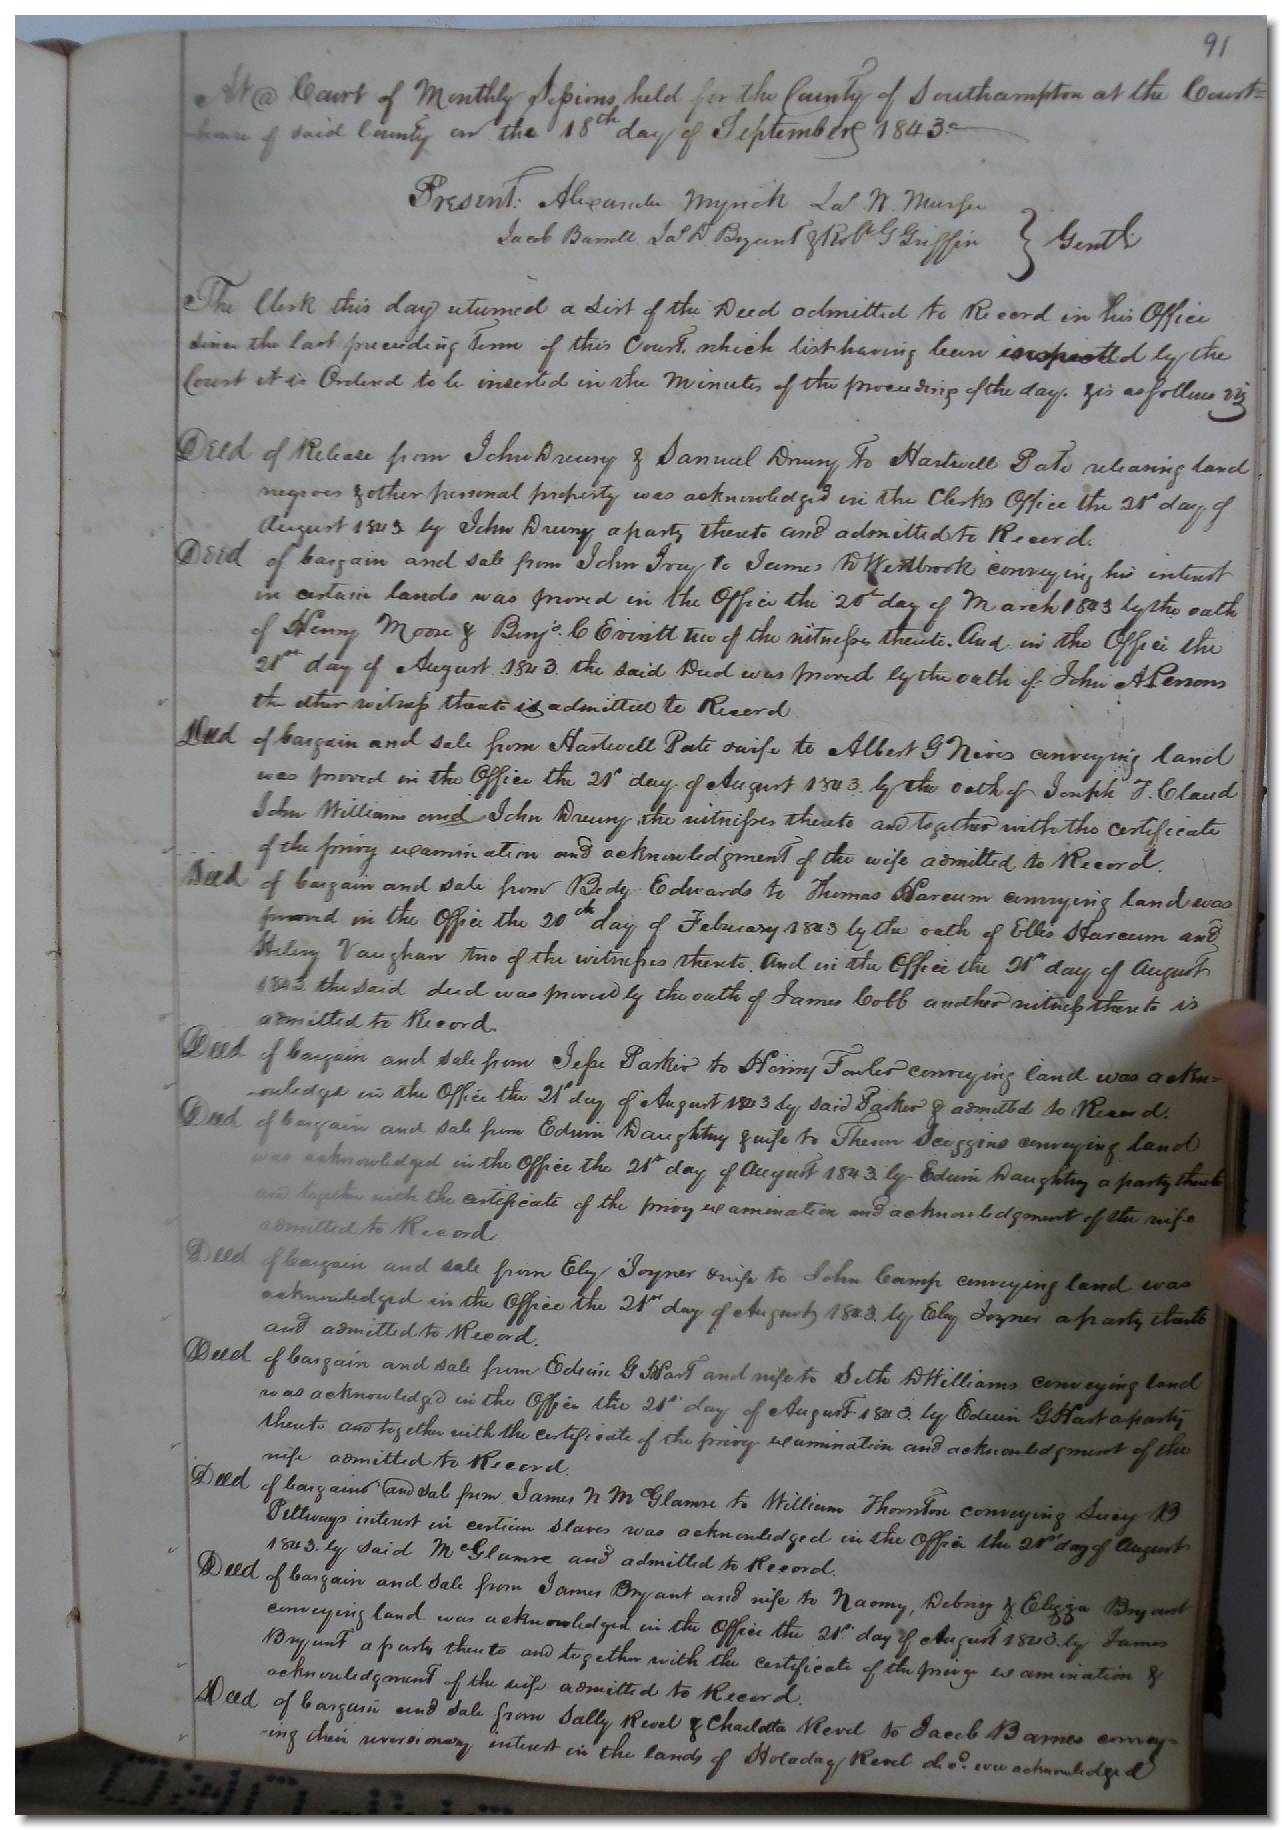 91
At a Court of Monthly Sessions, held for the County of Southampton at the Court=
house of said County on the 18th day of September 1843.
Present: Alexander Myrick Jas W. Murfee
Jacob Barrett Jas D Bryant & Robt G Griffin } Gentl.
The Clerk this day returned a List of the Deed admitted to Record in his Office
since the last preceeding Term of this Court, which list having been inspected by the
Court it is Ordered to be inserted in the Minutes of the proceeding of the day. & is as follows viz
Deed of Release from John Drewry & Samuel Drewry To Hartwell Pate releasing land
negroes & other personal property was acknowledged in the Clerks Office the 21st day of
August 1843 by John Drewry a party thereto and admitted to Record.
Deed of bargain and sale from John Ivey to James D Westbrook conveying his interest
in certain lands was proved in the Office the 20th day of March 1843 by the oath
of Henry Moore & Benj. C Everitt two of the witnesses thereto. And in the Office the
21st day of August 1843. the said Deed was proved by the oath of John A Persons
the other witness thereto is admitted to Record
Deed of bargain and sale from Hartwell Pate & wife to Albert G Nevis conveying land
was proved in the Office the 21st day of August 1843. by the oath of Joseph T. Claud
John Williams and John Drewry, the witnesses thereto and together with the certificate
of the privy examination and acknowledgment of the wife admitted to Record.
Deed of bargain and sale from Bedy Edwards to Thomas Harcum conveying land was
proved in the Office the 20th day of February 1843 by the oath of Ellis Harcum and
Henry Vaughan two of the witnesses thereto. And in the Office the 21st day of August
1843 the said deed was proved by the oath of James Cobb another witness thereto is
admitted to Record.
Deed of bargain and sale from Jesse Parker to Henry Fowler conveying land was ackn=
owledged in the Office the 21st day of August 1843 by said Parker & admitted to Record.
Deed of bargain and sale from Edwin Daughtry & wife to Theron Scoggins conveying land
was acknowledged in the Office the 21st day of August 1843 by Edwin Daughtry a party thereto
and together with the certificate of the privy examination and acknowledgment of the wife
admitted to Record
Deed of bargain and sale from Ely Joyner & wife to John Camp conveying land was
acknowledged in the Office the 21st day of August 1843. by Ely Joyner a party thereto
and admitted to Record.
Deed of bargain and sale from Edwin G Hart and wife to Seth D Williams conveying land
was acknowledged in the Office the 21st day of August 1843 by Edwin G Hart a party
thereto and together with the certificate of the privy examination and acknowledgment of the
wife admitted to Record.
Deed of bargains and sale from James N McGlamre to William Thornton conveying Lucy B
Pettways interest in certain slaves was acknowledged in the Office the 21st day of August
1843. by said McGlamre and admitted to Record.
Deed of bargain and sale from James Bryant and wife to Naomy, Debrix & Elizza Bryant
conveying land was acknowledged in the Office the 21st day of August 1843. by James
Bryant a party thereto and together with the certificate of the privy examination &
acknowledgment of the wife admitted to Record.
Deed of bargain and sale from Sally Revel & Charlotta Revel to Jacob Barnes convey=
ing their reversionary interest in the lands of Holaday Revel decd. was acknowledged